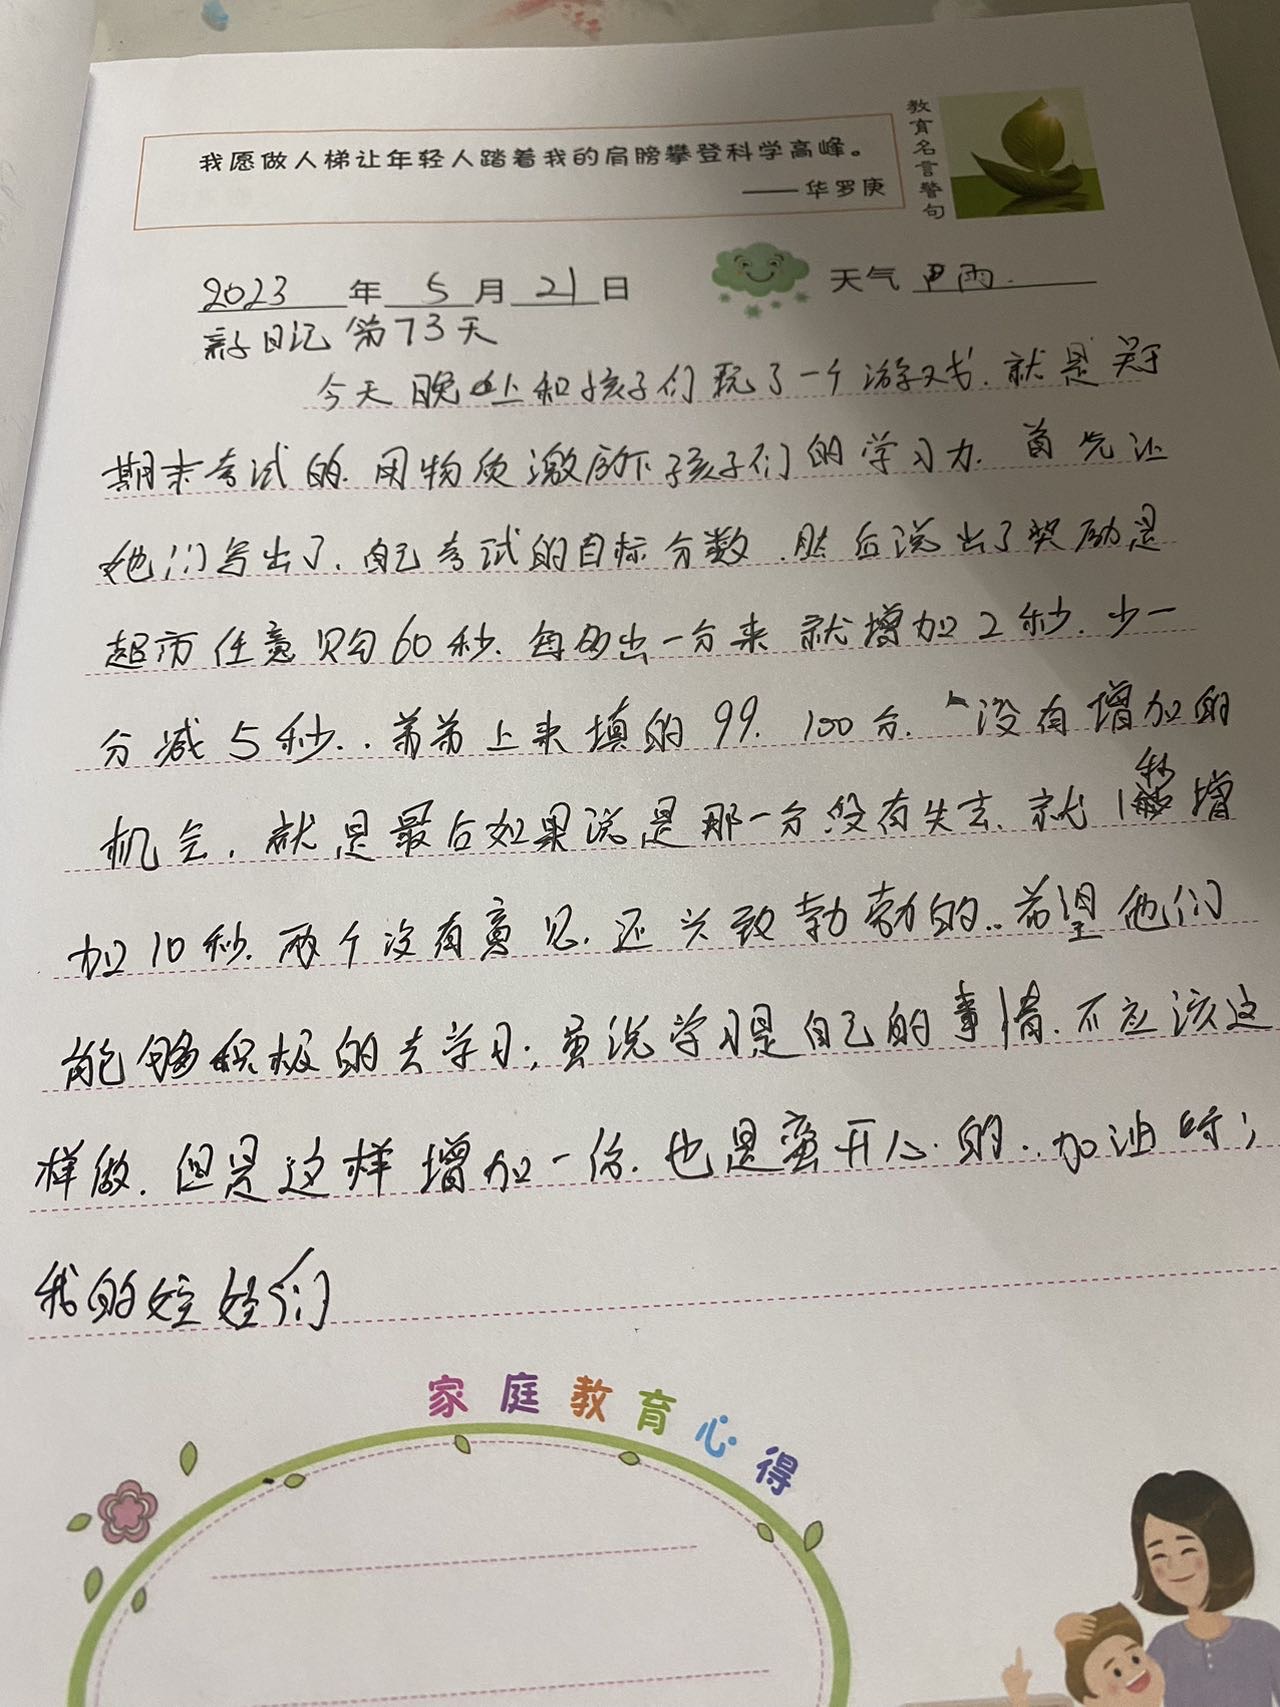 我愿做人梯让年轻人踏着我的肩膀攀登科学高峰。
——华罗庚
教育名言警句
2023年5月21日 天气 雨.
亲子日记 第73天
今天晚上和孩子们玩了一个游戏.就是关于
期末考试的.用物质激励下孩子们的学习力.首先让
他们写出了.自己考试的目标分数.然后说出了奖励是
超市任意购60秒.每多出一分来就增加2秒.少一
分减5秒..弟弟上来填的99.100分.没有增加的
机会.就是最后如果说是那一分没有失去.就1秒增
加10秒.两个没有意见.还兴致勃勃的..希望他们
能够积极的去学习;虽说学习是自己的事情.不应该这
样做.但是这样增加一份.也是蛮开心的..加油呀;
我的娃娃们
家庭教育心得